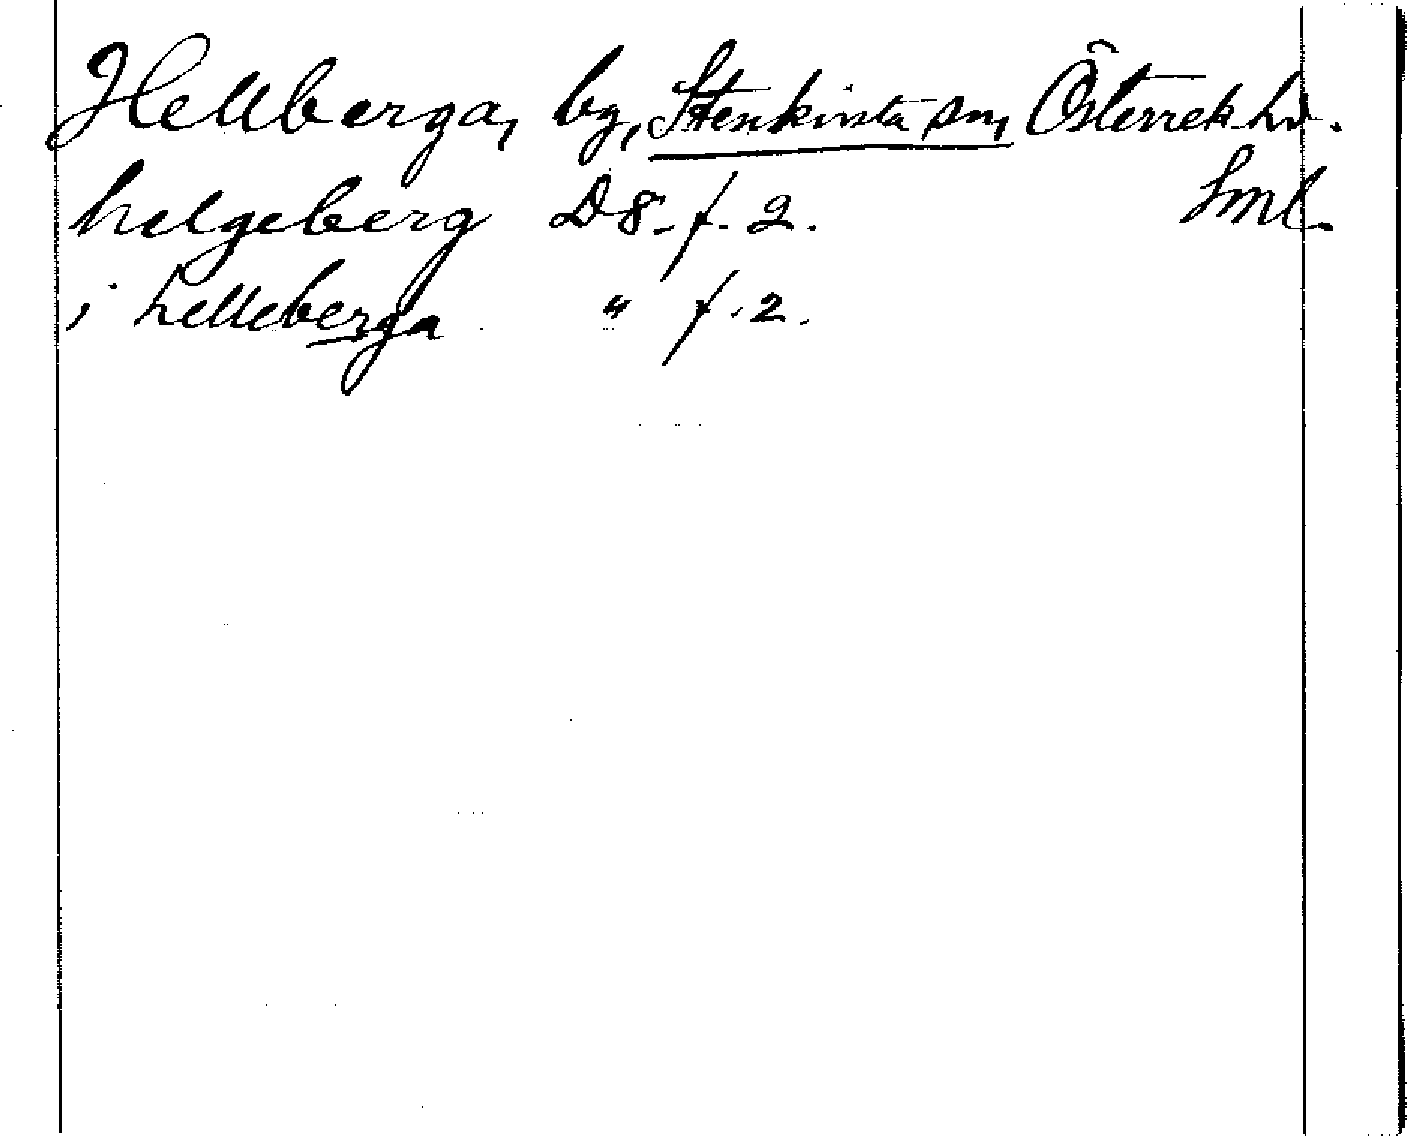 Hellberga, by, Stenkirsta sn, Österrek hd.
helgeberg D8. f. 2. Sml.
i helleberga " f. 2.